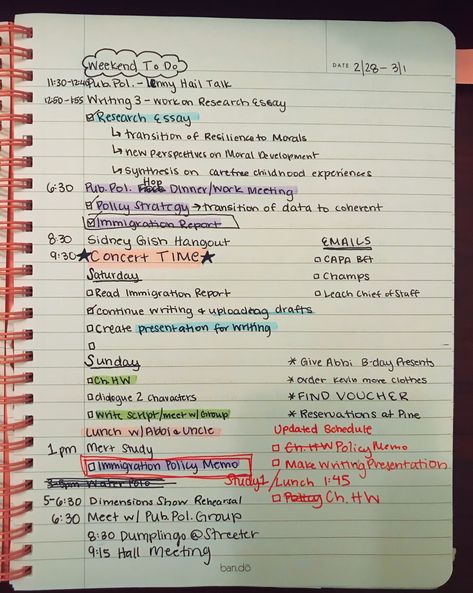 Weekend To Do
DATE 2/28-3/1
11:30-12:40 Pub.Pol. - Lenny Hail Talk
12:50-1:55 Writing 3 - work on Research Essay
Research Essay
↳ transition of Resilience to Morals
↳ new perspectives on Moral Development
↳ synthesis on carefree childhood experiences
6:30 Pub.Pol. Hop Dinner/Work Meeting
Policy Strategy → transition of data to coherent
Immigration Report
8:30 Sidney Gish Hangout
9:30 ★Concert TIME★
EMAILS
CAPA BFT
Champs
Leach Chief of Staff
Saturday
Read Immigration Report
continue writing & uploading drafts
Create presentation for writing
Sunday
Ch. HW
dialogue 2 characters
Write script/meet w/ Group
* Give Abbi B-day Presents
* order Kevin more clothes
* FIND VOUCHER
* Reservations at Pine
Lunch w/ Abbi & Uncle
1pm Merit Study
Immigration Policy Memo
Updated Schedule
Ch. HW Policy Memo
Make Writing Presentation
Study 1/Lunch 1:45
Policy Ch. HW
5-6:30 Dimensions Show Rehearsal
6:30 Meet w/ Pub.Pol. Group
8:30 Dumplings @ Streeter
9:15 Hall Meeting
ban.dō